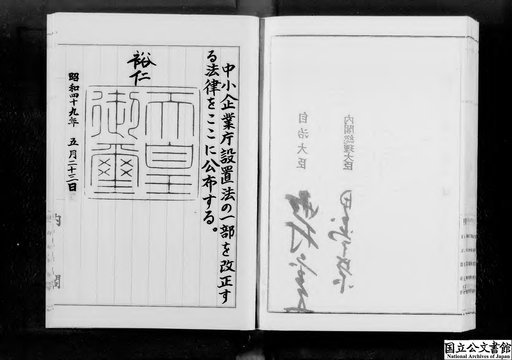 内閣総理大臣
自治大臣
中小企業庁設置法の一部を改正す
る法律をここに公布する。
裕仁
天皇
御璽
昭和四十九年 五月二十三日
内閣
国立公文書館
National Archives of Japan